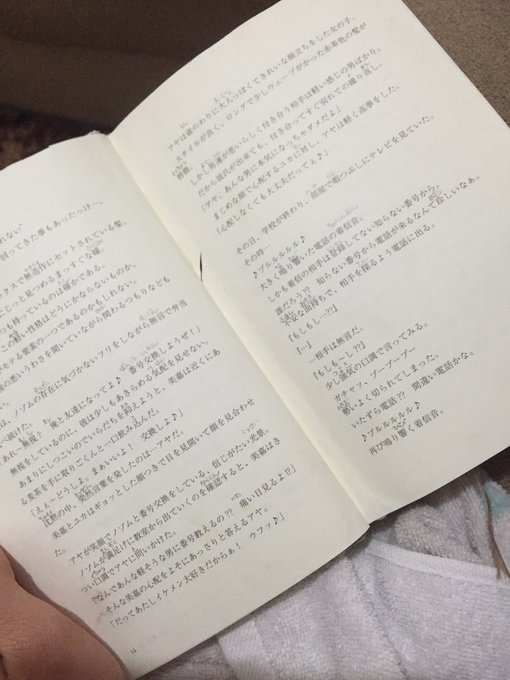 れない
回ってきた事もあったっけ…。
ックスで無造作にセットされている髪。
にじっと見つめるまっすぐな瞳。
つも持っているのは確かである。
この軽い性格はどうにかならないものか。
モテる要素の一つであるのかもしれない。
の悪いうわさを聞いていながら関わるつもりなども
は、ノゾムの存在に気づかないフリをしながら無言で弁当
べ続けた。
「あれ〜無視？ 俺と友達になってよ♪ 番号交換しようぜ！」
無視をしているのに、彼は少しもあきらめる気配を見せない。
あまりにしつこいのでいらだちを抑えようと、美嘉は近くにあ
る麦茶を手に取りごくんと一口飲み込んだ。
「えぇ〜どうしよ。まぁいいよ！ 交換しよ♪」
沈黙の中、突然言葉を発したのは…アヤだ。
美嘉とユカはギョッとした顔つきで目を見開いて顔を見合わせ
た。
アヤが笑顔でノゾムと番号交換をしている、信じがたい光景。
ノゾムが満足げに教室から出ていくのを確認すると、美嘉はき
つい口調でアヤに問いかけた。
「なんであんな軽そうな男に番号教えるの?? 痛い目見るよ!?」
そんな美嘉の心配をよそにあっさりと答えるアヤ。
「だってあたしイケメン大好きだからぁ！ ウフッ♪」
14
アヤは歳のわりに大人っぽくてきれいな顔立ちをした女の子。
スタイルが良く、ロングで少しウェーブがかった赤茶色の髪が
容姿。
しかし男運が悪いらしく付き合う相手は軽い感じの男ばかり。
だから彼氏が出来ても、付き合ってすぐ別れての繰り返し。
「アヤ、あんな男に本気になっちゃダメだよ」
まじめな顔で心配するユカに対し、アヤは軽く返事をした。
「心配しなくても大丈夫だってよ♪」
その日、学校が終わり、部屋で暇つぶしにテレビを見ていた。
その時…
♪プルルルルル♪
大きく鳴り響いた電話の着信音。
しかも着信の相手は登録してない知らない番号から。
誰だろう?? 知らない番号から電話が来るなんて珍しいなぁ。
不安な気持ちで、相手を探るよう電話に出る。
「もしもし…??」
『…』
…相手は無言だ。
「もしも〜し??」
少し強気の口調で言ってみる。
ガチャッ、プープープー
勢いよく切られてしまった。
いたずら電話?? 間違い電話かな。
♪プルルルルル♪
再び鳴り響く着信音。